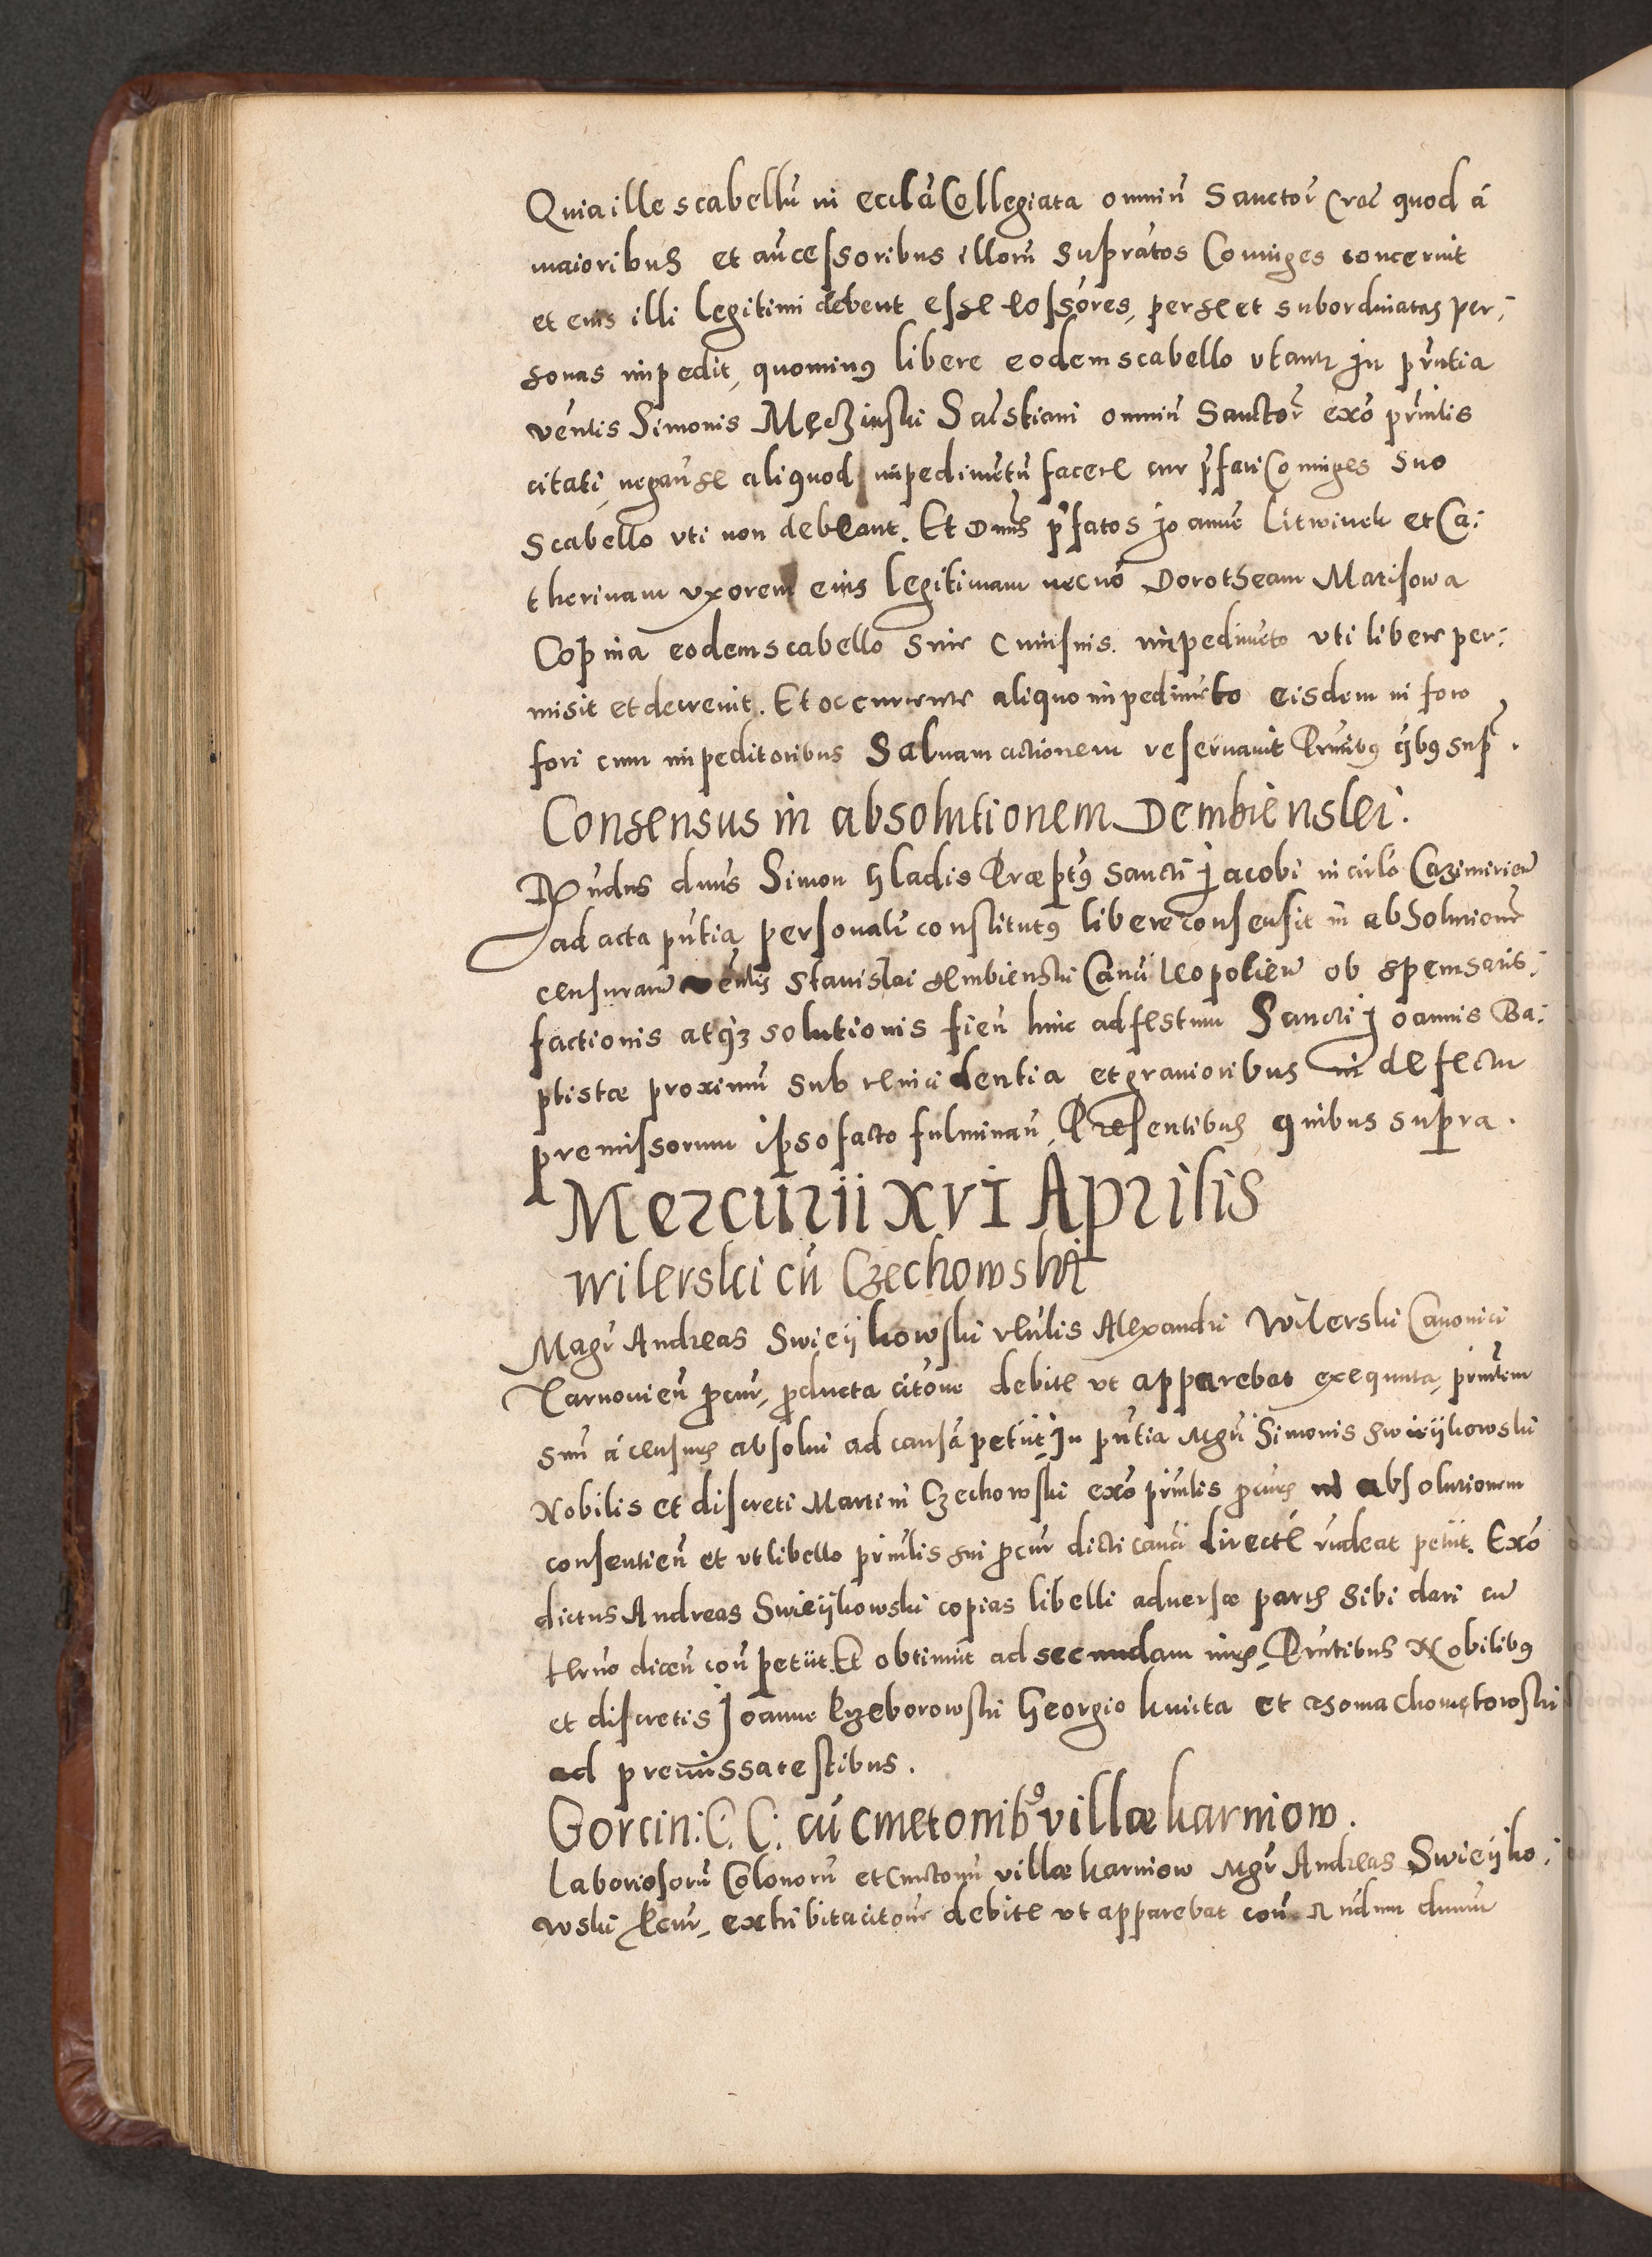 Quia ille scabellū in eccl̄a Collegiata omniū Sanctor̄ Crac̄ quod á
maioribus et an̄cessoribus illorū supratos Coniuges concernit
et eius illi legitimi debent esse possores, per se et subordinatas per:
sonas impedit, quominus libere eodem scabello vtantr̄ In pn̄tia
ven̄lis Simonis Męczinski Sacristiani omniū Sanctor̄ exō prin̄lis
citati, negan̄ se aliquod impedimn̄tū facere cur p̄fati Coniuges suo
scabello vti non debeant. Et Dn̄us p̄fatos Joannē Litwinek et Ca:
therinam vxorem eius legitimam necnō Dorotheam Matisowa
Copinia eodem scabello sine cuiusuis impedimēto vti libere per:
misit et decreuit. Et occurrente aliquo impedimēto eisdem in foro
fori cum impeditoribus saluam actionem reseruauit Prn̄tibus qibus sup̄.
Consensus in absolutionem Dembienski.
Rn̄dus dn̄us Simon Gladis Præptus Sancti Jacobi in circlō Cazimirien̄
ad acta pn̄tia personalr̄ constitutus libere consensit in absolutionē
censurarū ven̄lis Stanislai Dembienski Can̄ci Leopolien̄ ob spem satis:
factionis atqz solutionis fien̄ hinc ad festum Sancti Joannis Ba:
ptistæ proximū sub reincidentia et grauioribus in defectu
premissorum ipso facto fulminan̄, Presentibus quibus supra.
Mercurii XVI Aprilis
Wilerski cū Czechowski
Magr̄ Andreas Swieykowski ven̄lis Alexandri Wilerski Canonici
Tarnouien̄ procur̄, producta citōne debite vt apparebat exequuta, prin̄lem
suū á censuris absolui ad causā petiit In pn̄tia Mgr̄i Simonis Swieykowski
Nobilis et discreti Martini Czechowski exō prin̄lis procuris in absolutionem
consentien̄ et vt libello prin̄lis sui procur̄ dicti cau̅ci directe rn̄deat petiit. Exō
dictus Andreas Swieykowski copias libelli aduersæ partis sibi dari cū
termō dicen̄ con̄ petiit. Et obtinuit ad secundam iuris, Prn̄tibus Nobilibus
et discretis Joanne Rzeborowski Georgio Kwinta et Thoma Chometowski
ad premissa testibus.
Gorcin: C. C: cū cmetonibus villæ Karniow.
Laboriosorū Colonorū et Cmetonū villæ Karniow Mgr̄ Andreas Swieyko:
wski Procur̄, exhibita citōne debite vt apparebat con̄ Rn̄dum dn̄um